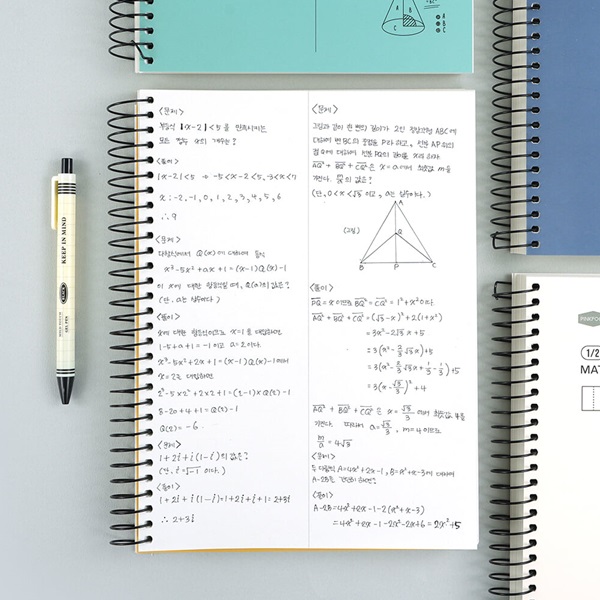 <문제>
부등식 |x-2|<5 을 만족시키는
모든 정수 x의 개수는?
<풀이>
|x-2|<5 → -5<x-2<5, -3<x<7
x: -2, -1, 0, 1, 2, 3, 4, 5, 6
∴ 9
<문제>
다항식에서 Q(x)에 대하여 등식
x³-5x²+ax+1=(x-1)Q(x)-1
이 x에 대한 항등식일 때, Q(a)의 값은?
(단, a는 상수이다.)
<풀이>
x에 대한 항등식이므로 x=1을 대입하면
1-5+a+1=-1 이고 a=2이다.
x³-5x²+2x+1=(x-1)Q(x)-1에서
x=2를 대입하면
2³-5×2²+2×2+1=(2-1)×Q(2)-1
8-20+4+1=Q(2)-1
Q(2)=-6
<문제>
1+2i+i(1-i)의 값은?
(단, i=√-1 이다.)
<풀이>
1+2i+i(1-i)=1+2i+i+1=2+3i
∴ 2+3i
<문제>
그림과 같이 한 변의 길이가 2인 정삼각형 ABC에
대하여 변 BC의 중점을 P라 하고, 선분 AP 위의
점 Q에 대하여 선분 PQ의 길이를 x라 하자.
AQ²+BQ²+CQ²은 x=a에서 최솟값 m을
가진다. m/a의 값은?
(단, 0<x<√3 이고, a는 실수이다.)
(그림)
A
Q
B P C
<풀이>
PQ=x 이므로 BQ²=CQ²=1²+x²이다.
AQ²+BQ²+CQ²=(√3-x)²+2(1+x²)
=3x²-2√3x+5
=3(x²-2/3√3x)+5
=3(x²-2/3√3x+1/3-1/3)+5
=3(x-√3/3)²+4
AQ²+BQ²+CQ²은 x=√3/3 에서 최솟값 4를
가진다. 따라서 a=√3/3, m=4이므로
m/a=4√3
<문제>
두 다항식 A=4x²+2x-1, B=x²+x-3에 대하여
A-2B를 간단히 하면?
<풀이>
A-2B=4x²+2x-1-2(x²+x-3)
=4x²+2x-1-2x²-2x+6=2x²+5
KEEP IN MIND
GEL PEN
A
B
C
1/2
MAT